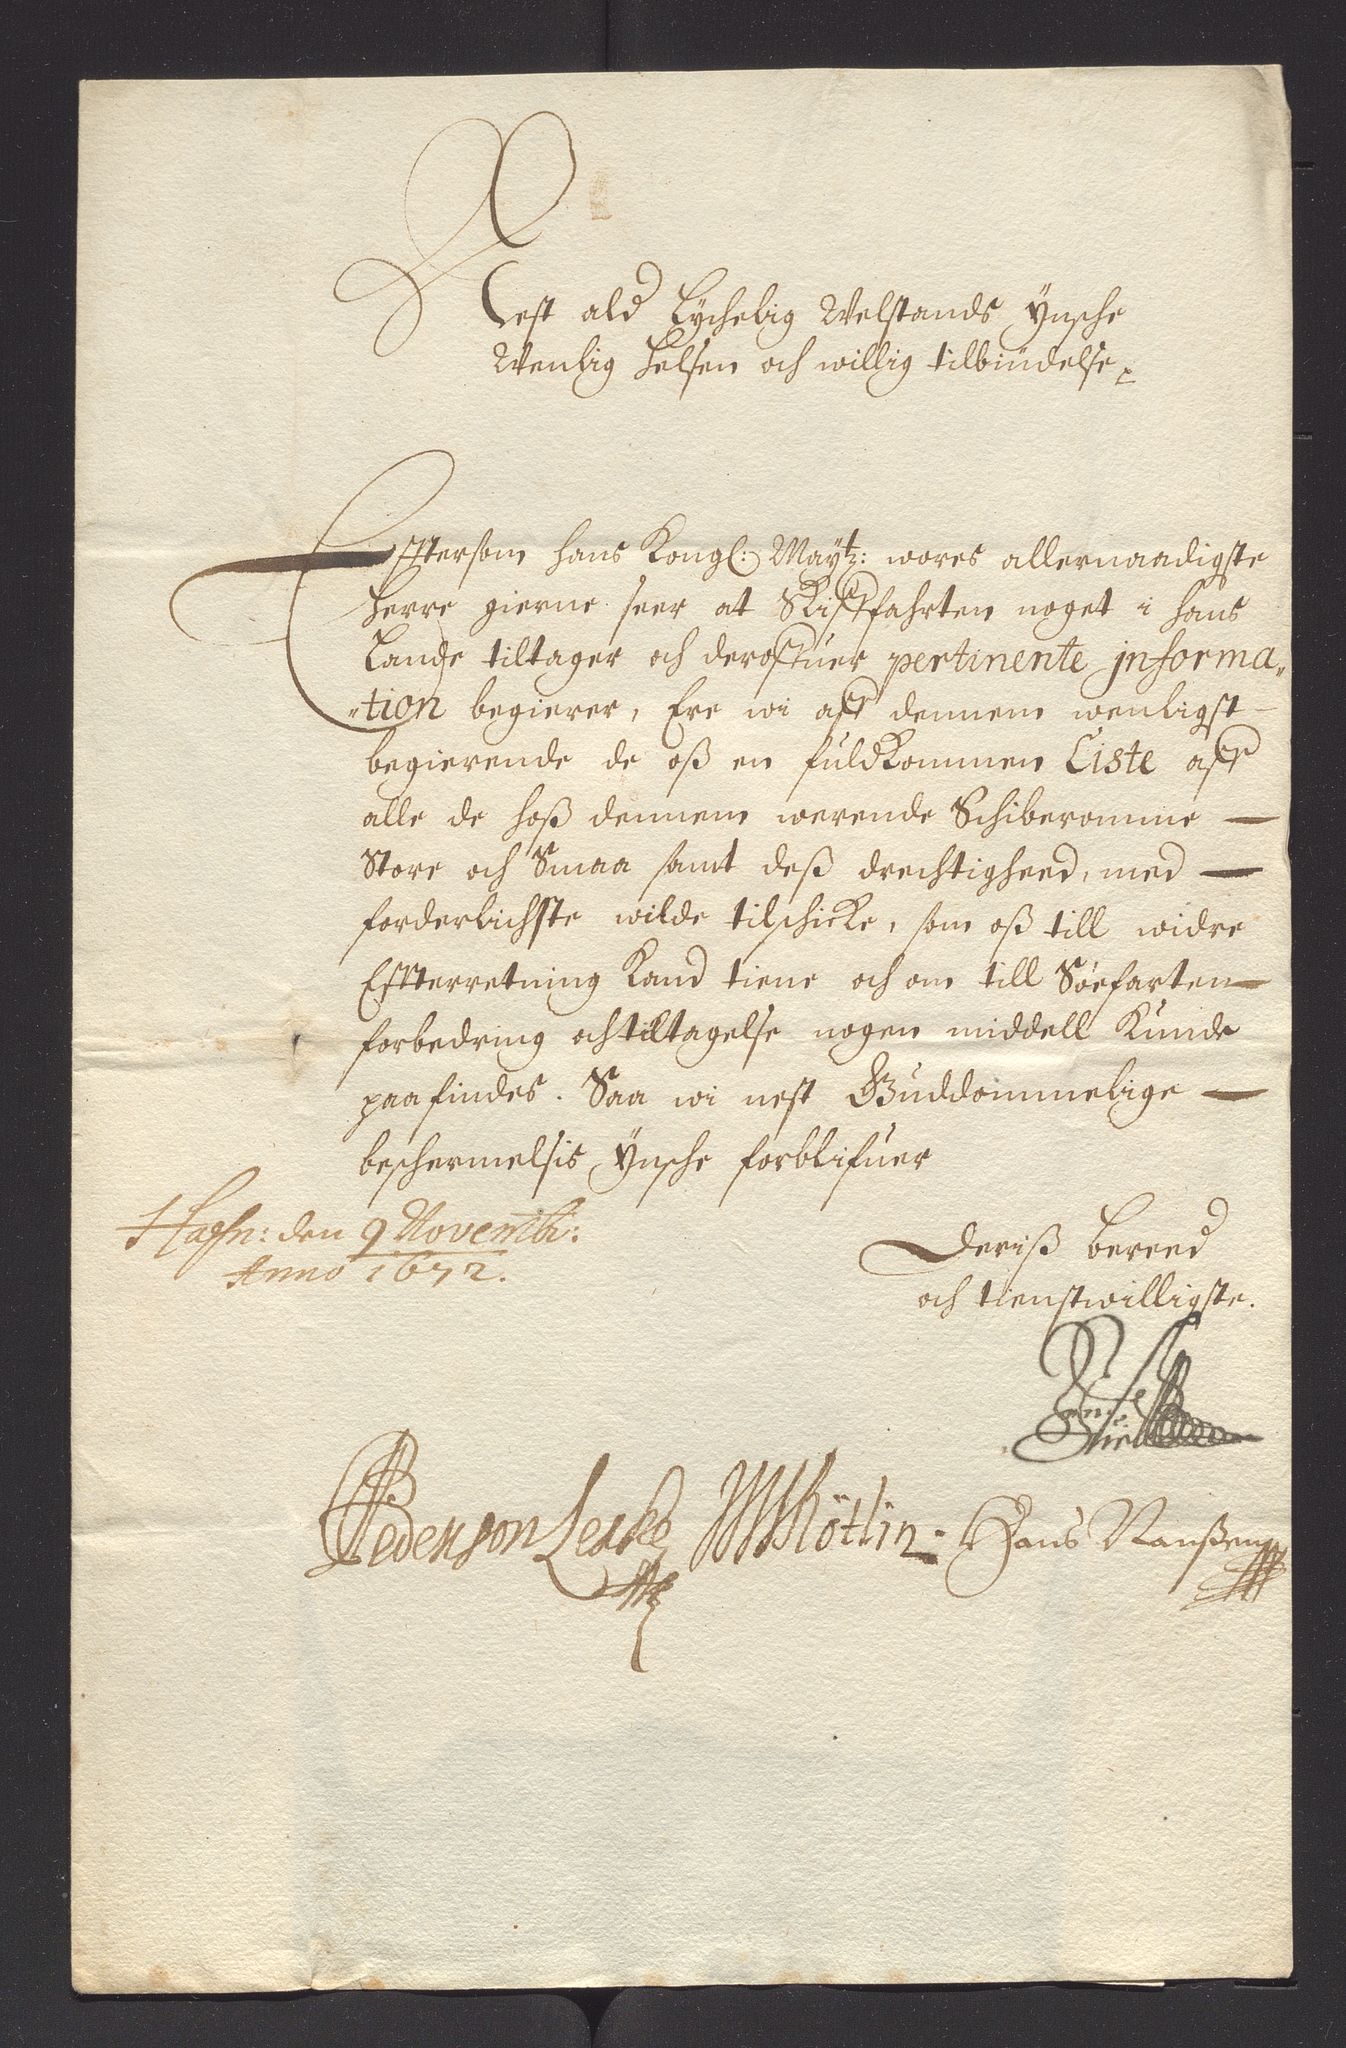 Nest ald Lychelig Velstands Ynsche
Venlig Helsen och willig tilbiudelse
Effttersom hans Kongl: Maytz: wores allernaadigste
Herre gierne seer at Skifffahrten noget i hans
Lande tiltager och deroffuer pertinente jnforma„
„tion begierer, Ere wi aff dennem wenligst
begierende de oß en fuldKommen Liste aff
alle de hoß dennem werende Schiberomme
Store och Smaa samt deß drechtigheed, med
forderlichste wilde tilschicke, som oß till widre
Effterretning Kand tiene och om till Söefarten
forbedring och tiltagelse nogen middell Kunde
paafindes. Saa wi nest Guddommelige
beschermelsis Ynsche forblifuer
Hafn: den 9 Novembr:
Anno 1672.
Deriß bereed
och tienstwilligste.
Pedersøn Lerke Hans Nanßen